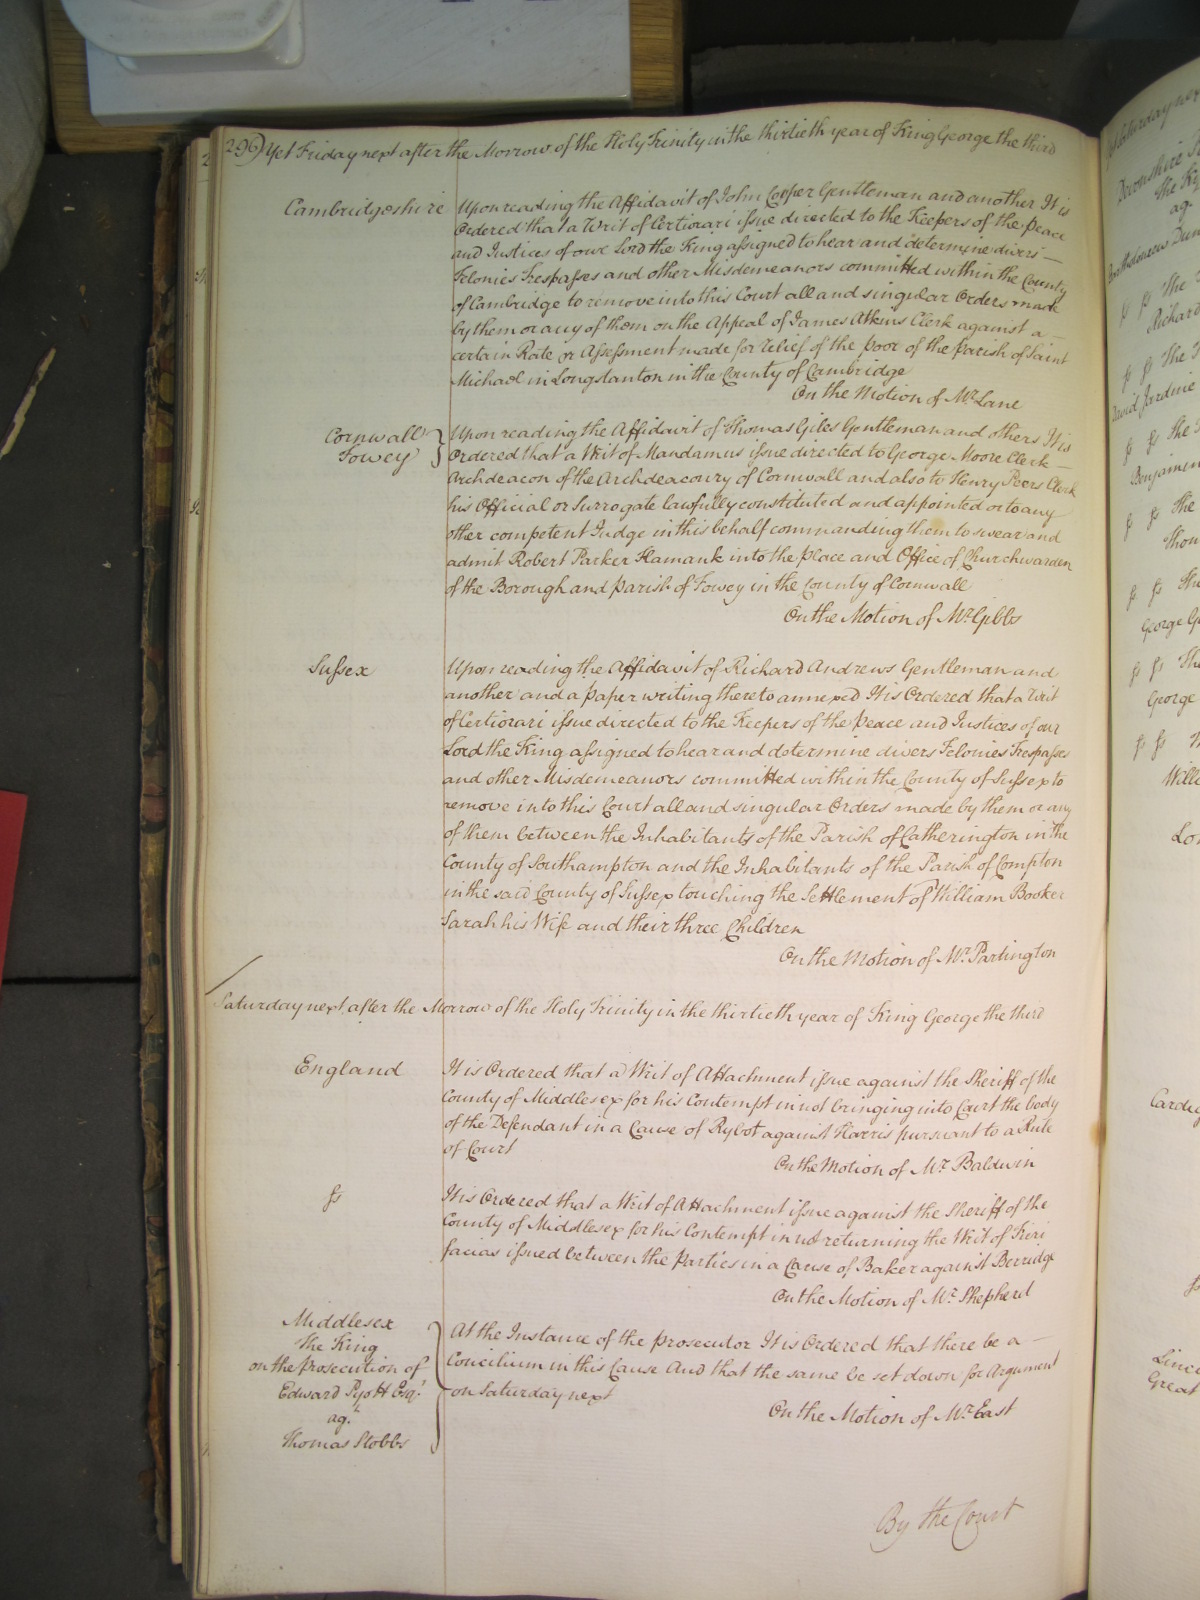 296) Yet Friday next after the Morrow of the Holy Trinity in the thirtieth year of King George the third
Cambridgeshire Upon reading the Affidavit of John Cooper Gentleman and another It is
Ordered that a Writ of Certiorari issue directed to the Keepers of the peace
and Justices of our Lord the King assigned to hear and determine divers —
Felonies Trespasses and other Misdemeanors committed within the County
of Cambridge to remove into this Court all and singular Orders made
by them or any of them on the Appeal of James Atkins Clerk against a —
certain Rate or Assessment made for relief of the poor of the parish of Saint
Michael in Longstanton in the County of Cambridge
On the Motion of Mr. Lane
Cornwall
Fowey
Upon reading the Affidavit of Thomas Giles Gentleman and others It is
Ordered that a Writ of Mandamus issue directed to George Moore Clerk —
Archdeacon of the Archdeaconry of Cornwall and also to Henry Peers Clerk
his Official or Surrogate lawfully constituted and appointed or to any
other competent Judge in this behalf commanding them to swear and
admit Robert Parker Hamank into the place and Office of Churchwarden
of the Borough and parish of Fowey in the County of Cornwall
On the Motion of Mr. Gibbs
Sussex Upon reading the Affidavit of Richard Andrews Gentleman and
another and a paper writing thereto annexed It is Ordered that a Writ
of Certiorari issue directed to the Keepers of the peace and Justices of our
Lord the King assigned to hear and determine divers Felonies Trespasses
and other Misdemeanors committed within the County of Sussex to
remove into this Court all and singular Orders made by them or any
of them between the Inhabitants of the Parish of Catherington in the
County of Southampton and the Inhabitants of the Parish of Compton
in the said County of Sussex touching the Settlement of William Booker
Sarah his Wife and their three Children
On the Motion of Mr. Partington
Saturday next after the Morrow of the Holy Trinity in the thirtieth year of King George the third
England It is Ordered that a Writ of Attachment issue against the Sheriff of the
County of Middlesex for his Contempt in not bringing into Court the body
of the Defendant in a Cause of Rybot against Harris pursuant to a Rule
of Court
On the Motion of Mr. Baldwin
ss It is Ordered that a Writ of Attachment issue against the Sheriff of the
County of Middlesex for his Contempt in not returning the Writ of Fieri
facias issued between the Parties in a Cause of Baker against Berridge
On the Motion of Mr. Shepherd
Middlesex
The King
on the prosecution of
Edward Pyott Esqr.
agt.
Thomas Stobbs
At the Instance of the prosecutor It is Ordered that there be a —
Concilium in this Cause And that the same be set down for Argument
on Saturday next
On the Motion of Mr. East
By the Court